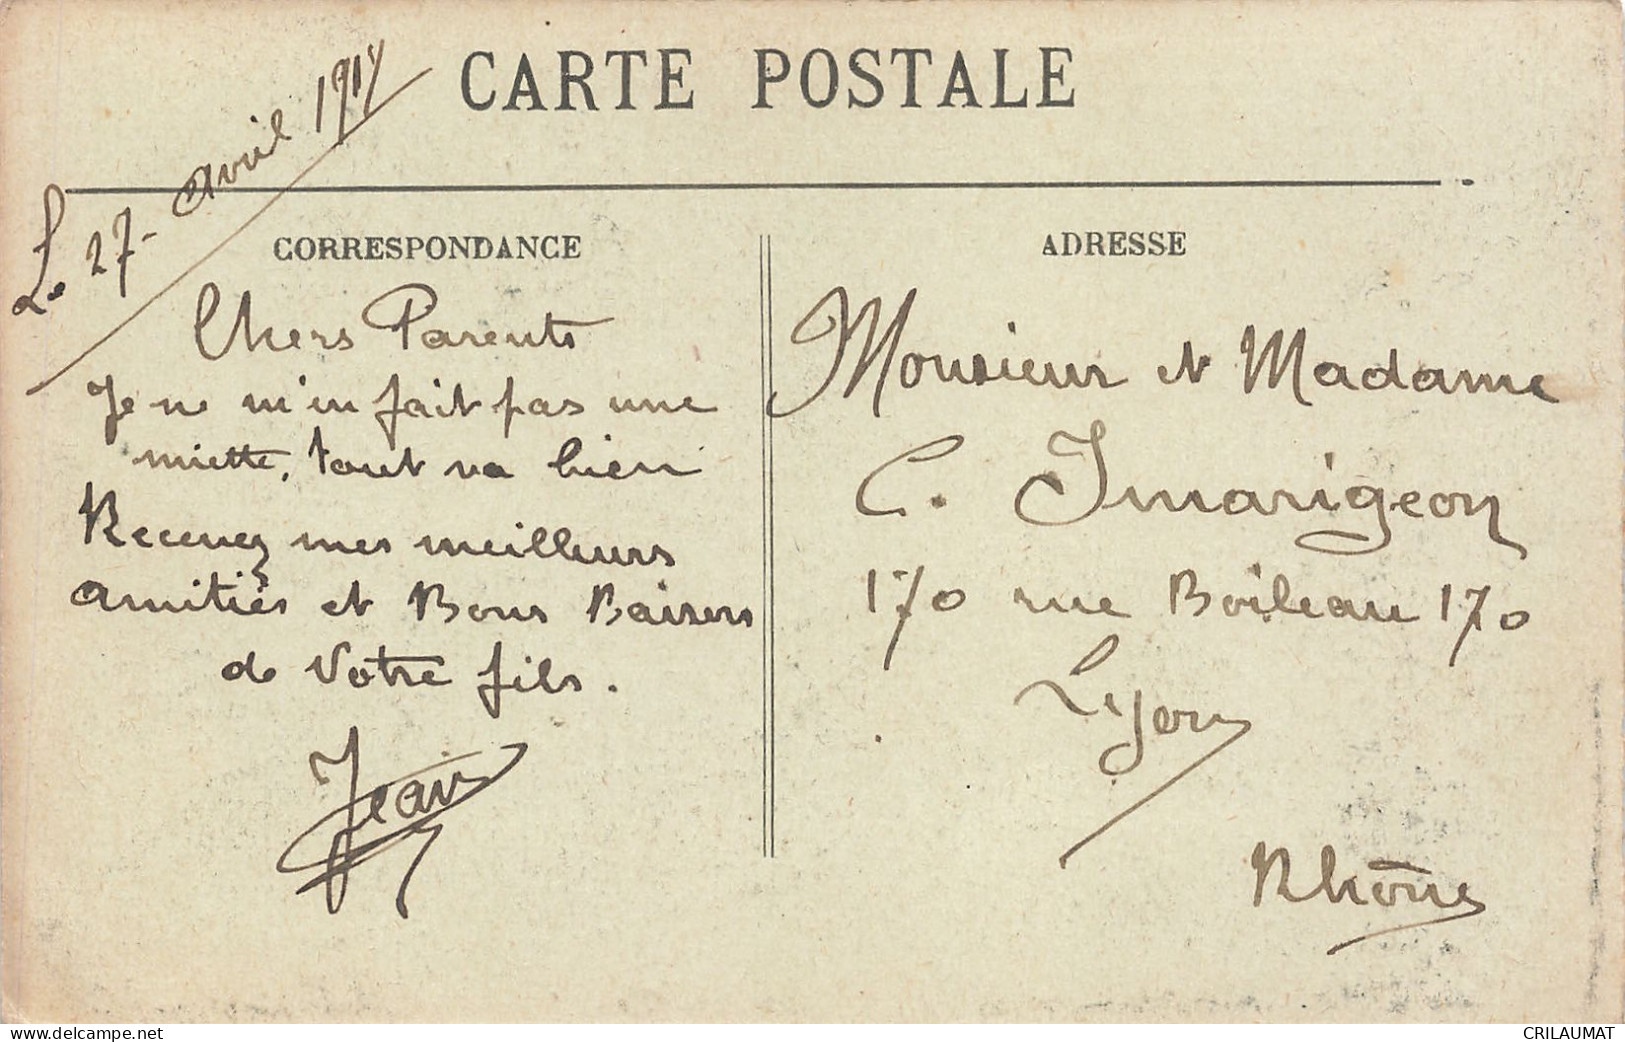 CARTE POSTALE
Le 27 - avril 191
CORRESPONDANCE
Chers Parents
Je ne m'en fait pas une
miette, tout va bien
Recevez mes meilleurs
amitiés et Bons Baisers
de Votre fils.
Jean
ADRESSE
Monsieur et Madame
C. Imarigeon
170 rue Boileau 170
Lyon
Rhône
www.delcampe.net
CRILAUMAT